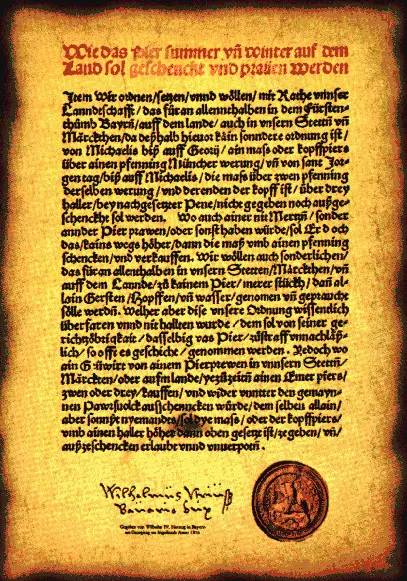 Wie das Pier summer vñ winter auf dem
Land sol geschenckt vnd prauen werden
Jtem Wir ordnen/setzen/vnnd wöllen/mit Rathe vnnser
Lanndtschafft/das füran allennthalben in dem Fürsten-
thůmb Bayrñ/auff dem lande/auch in vnsern Stettñ vñ
Märckthen/da deßhalb hieuor kain sonndere ordnung ist/
von Michaelis biß auff Georij/ain mass oder kopffpiers
über ainen pfenning Müncher werung/vñ von sant Jor-
gen tag/biß auff Michaelis/die mass über zwen pfenning
derselben werung/vnd derenden der kopff ist/über drey
haller/bey nachgesetzter Pene/nicht gegeben noch außge-
schenckht sol werden. Wo auch ainer nit Mertzñ/sonder
annder Pier prawen/oder sonst haben würde/sol Er d och
das/kains wegs höher/dann die maß vmb ainen pfenning
schencken/vnd verkauffen. Wir wöllen auch sonderlichen/
das füran allenthalben in vnsern Stetten/Märckthen/vñ
auff dem Lannde/zů kainem Pier/merer stückh/dañ al-
lain Gersten/Hopffen/vñ wasser/genomen vñ gepraucht
sölle werdñ. Welher aber dise vnsere Ordnung wissendlich
überfaren vnnd nit hallten wurde/dem sol von seiner ge-
richtzöbrigkait/dasselbig vas Pier/zůstraff vnnachläß-
lich/so offt es geschicht/genommen werden. Yedoch wo
ain Gůwirt von ainem Pierprewen in vnnsern Stettñ/
Märckten/oder aufm lande/yezůzeitñ ainen Emer piers/
zwen oder drey/kauffen/vnd wider vnnter den gemayn-
nen Pawrsuolck ausschenncken würde/dem selben allain/
aber sonnst nyemandts/sol dye mass/oder der kopffpiers/
vmb ainen haller höher dann oben gesetzt ist/ze geben/vñ/
außzeschencken erlaubt vnnd vnuerpotñ.
Gegeben von Wilhelm IV. Herzog in Bayern